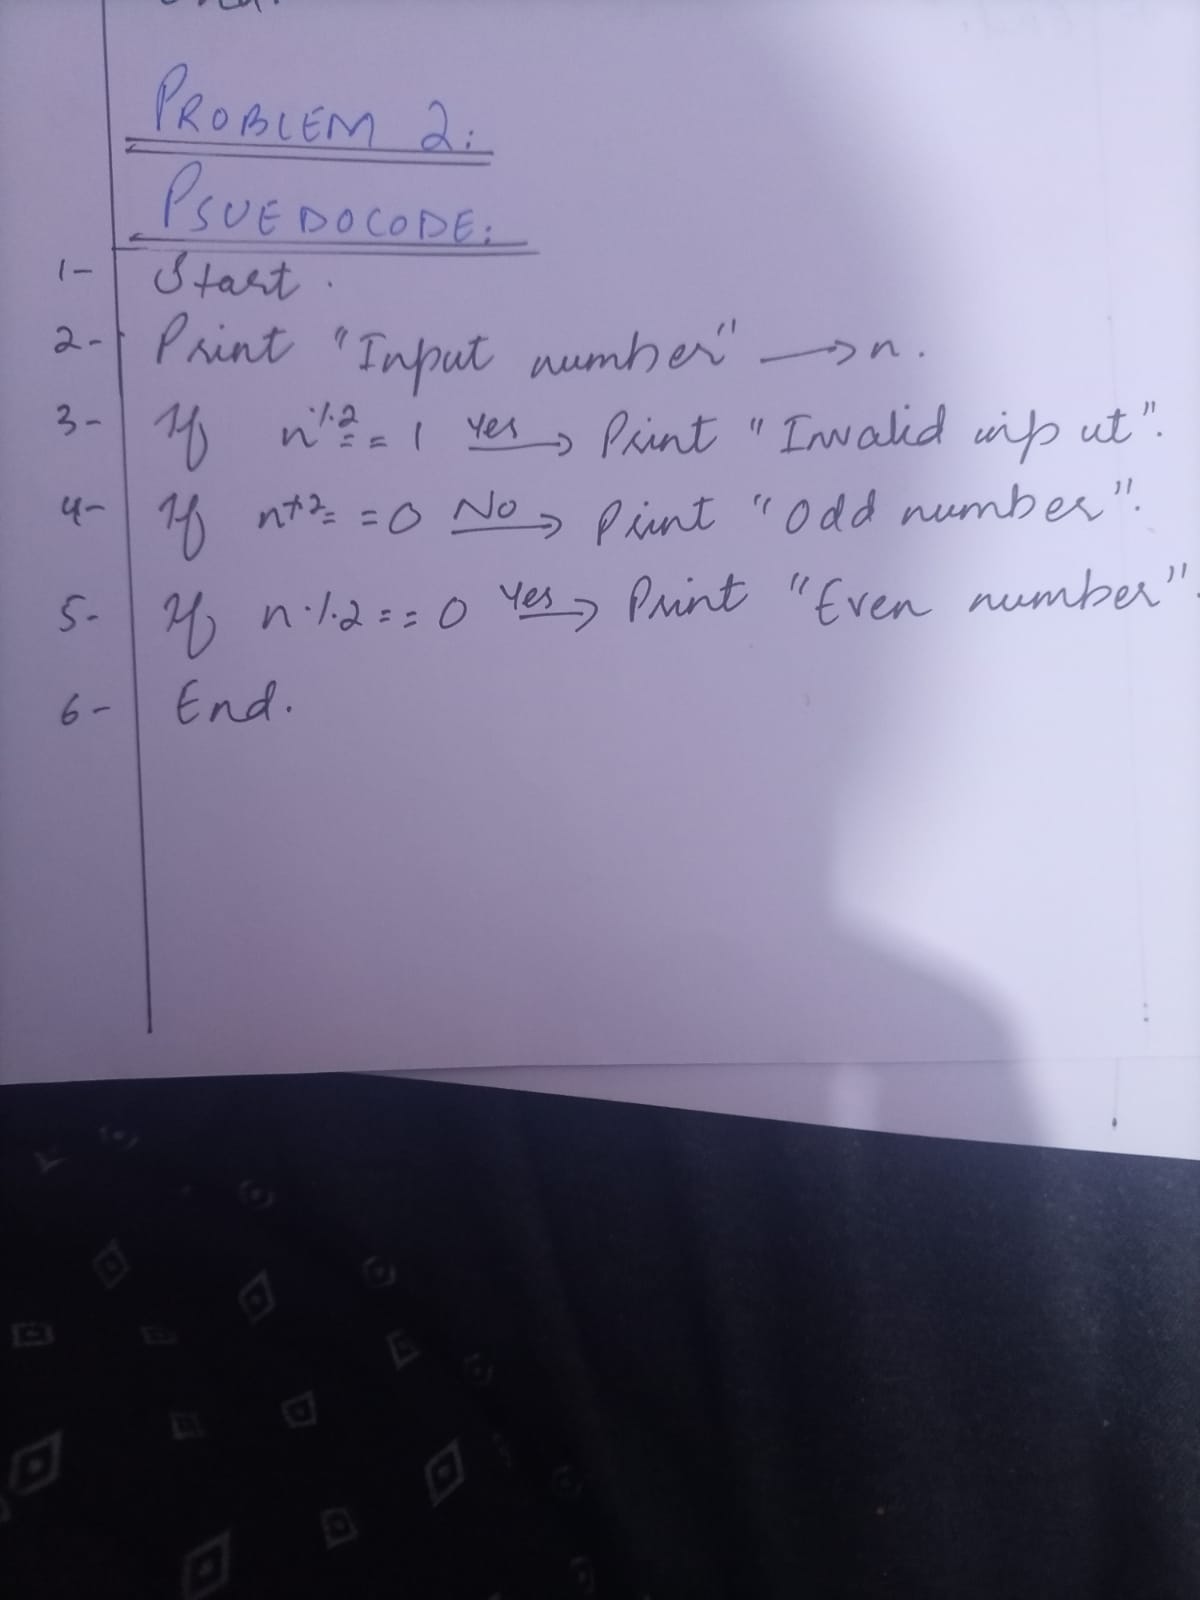 End.
PROBLEM 2:
PSUEDOCODE:
1- Start.
2- Print "Input number" → n.
3- If n%2 == 1 Yes → Print "Invalid input".
4- If n%2 == 0 No → Print "Odd number".
5- If n%2 == 0 Yes → Print "Even number".
6- End.